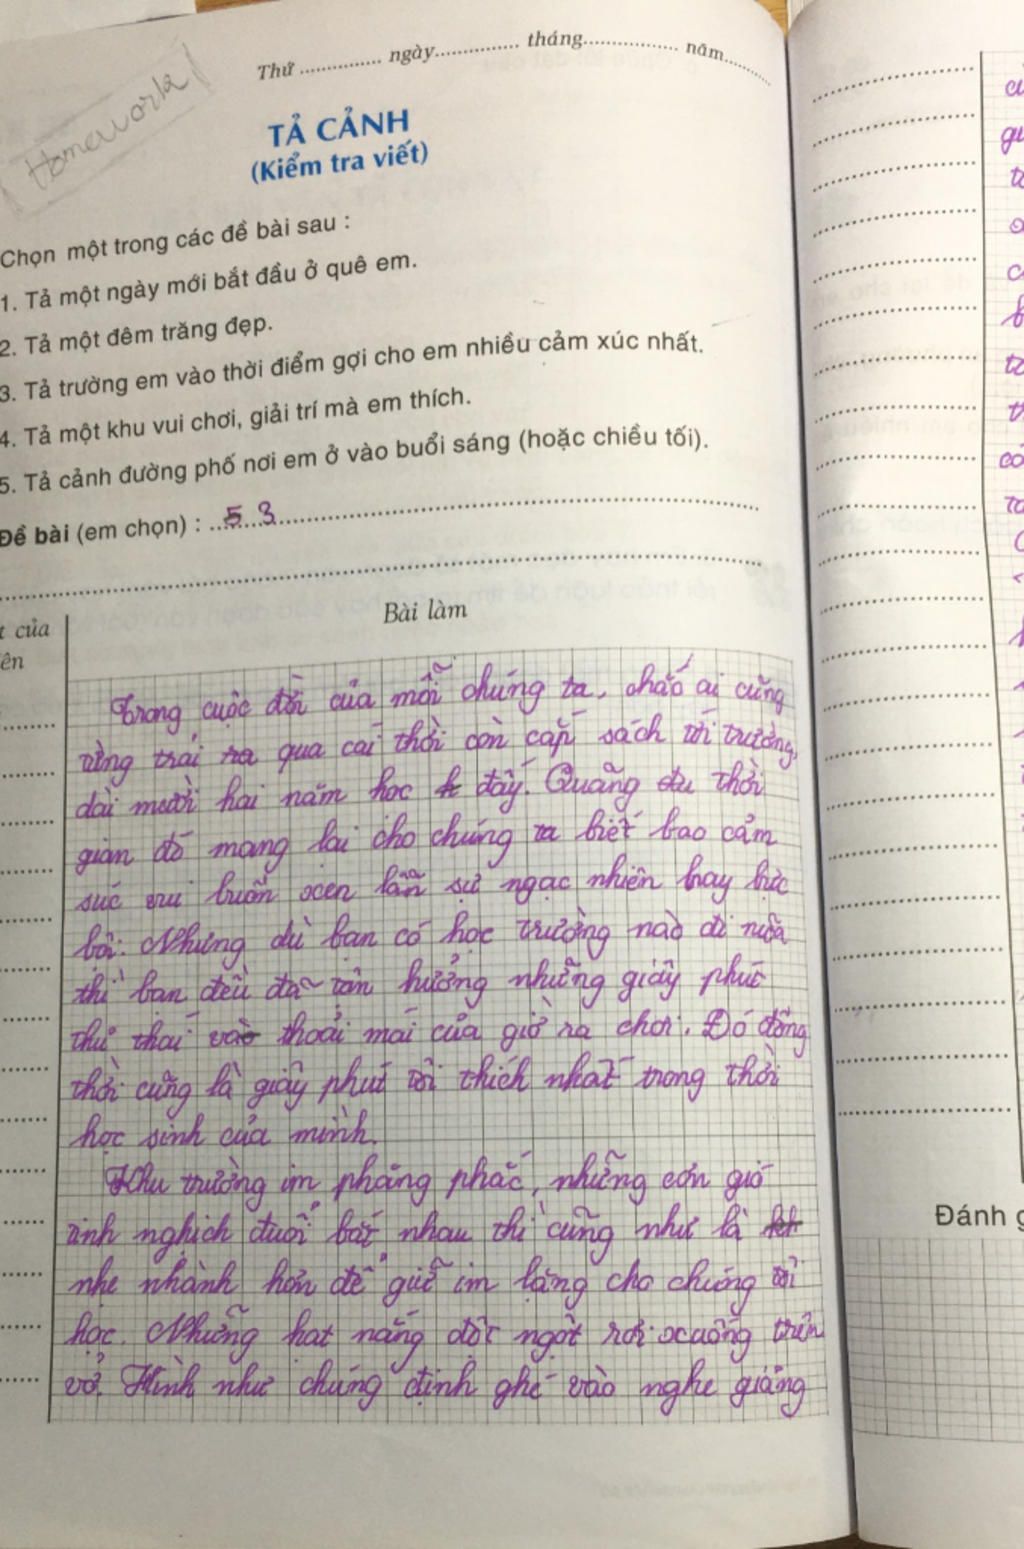 Homework
Thứ .............. ngày............... tháng................. năm.........
TẢ CẢNH
(Kiểm tra viết)
Chọn một trong các đề bài sau :
1. Tả một ngày mới bắt đầu ở quê em.
2. Tả một đêm trăng đẹp.
3. Tả trường em vào thời điểm gợi cho em nhiều cảm xúc nhất.
4. Tả một khu vui chơi, giải trí mà em thích.
5. Tả cảnh đường phố nơi em ở vào buổi sáng (hoặc chiều tối).
Đề bài (em chọn) : 5 3
của
ên
Bài làm
Trong cuộc đời của mỗi chúng ta, chắc ai cũng
từng trải ra qua cái thời còn cắp sách tới trường,
dài mười hai năm học đấy. Quãng thời
gian đó mang lại cho chúng ta biết bao cảm
súc vui buồn xen lẫn sự ngạc nhiên hay bực
bội. Nhưng dù bạn có học trường nào đi nữa
thì bạn đều đã tận hưởng những giây phút
thư thái và thoải mái của giờ ra chơi. Đó đồng
thời cũng là giây phút tôi thích nhất trong thời
học sinh của mình.
Khu trường im phăng phắc, những cơn gió
tinh nghịch đuổi bắt nhau thì cũng như là
nhẹ nhành hơn để giữ im lặng cho chúng tôi
học. Những hạt nắng dột ngột rơi xuống trên
vở. Hình như chúng định ghé vào nghe giảng
Đánh g